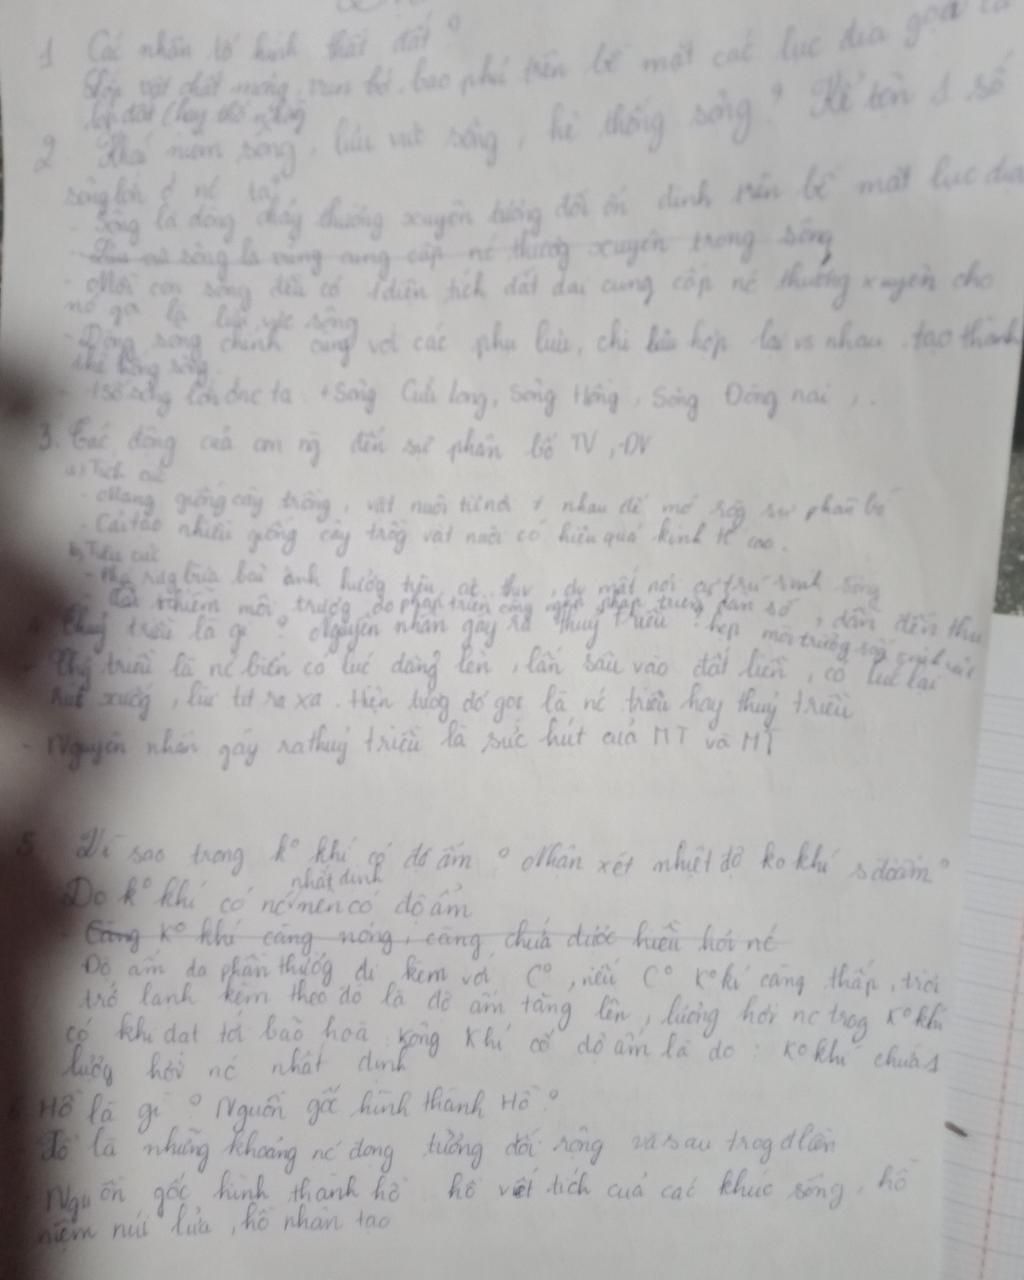 1 Các nhân tố hình thất đất?
Lớp vật chất mỏng, vụn bở, bao phủ trên bề mặt các lục địa gọi là
lớp đất (hay thổ nhưỡng
2 Khái niệm sông, lưu vực sông, hệ thống sông? Kể tên 1 số
sông lớn ở nc ta?
- Sông là dòng chảy thường xuyên tương đối ổn định trên bề mặt lục địa
- Lưu vực sông là vùng cung cấp nc thường xuyên trong sông
- Mỗi con sông đều có 1 diện tích đất đai cung cấp nc thường xuyên cho
nó gọi là lưu vực sông
- Dòng sông chính cùng với các phụ lưu, chi lưu hợp lại vs nhau tạo thành
hệ thống sông.
- 1 số sông lớn ở nc ta: + Sông Cửu Long, sông Hồng, Sông Đồng nai,..
3. Tác động của con ng đến sự phân bố TV, ĐV
a) Tích cực
- Mang giống cây trồng, vật nuôi từ nơi nhau để mở rộg sự phân bố
- Cải tạo nhiều giống cây trồg vật nuôi có hiệu quả kinh tế cao.
b) Tiêu cực
- Phá rừg bừa bãi ảnh hưởg tiêu cực mất nơi cư trú sinh sống
- ô nhiễm môi trườg do phát triển côg nghiệp, phát triển dân số, dẫn đến thu
hẹp môi trườg sốg sinh vật
4 Thuỷ triều là gì? Nguyên nhân gây ra thuỷ triều?
- Thủy triều là nc biển có lúc dâng lên, lấn sâu vào đất liền, có lúc lại
rút xuốg, lùi tít ra xa. Hiện tượg đó gọi là nc triều hay thuỷ triều
- Nguyên nhân gây ra thuỷ triều là sức hút của MT và MT
5 Vì sao trong k° khí có độ ẩm? Nhận xét nhiệt độ ko khí s độ ẩm?
Do k° khí có nc nhất định nên có độ ẩm
Càng k° khí càng nóng, càng chứa được hiều hơi nc
Độ ẩm đa phần thườg đi kèm với C°, nếu C° k° kí càng thấp, trời
trở lạnh kèm theo đó là độ ẩm tăng lên, lượng hơi nc trog k° khí
có khi đạt tới bão hoà. Kông khí có độ ẩm là do: ko khí chứa 1
lượg hơi nc nhất định
6 Hồ là gì? Nguồn gốc hình thành Hồ?
Hồ là những khoảng nc đọng tương đối rộng và sau trog đ liền
Nguồn gốc hình thành hồ hồ vết tích của các khúc sông, hồ
miệm núi lửa, hồ nhân tạo